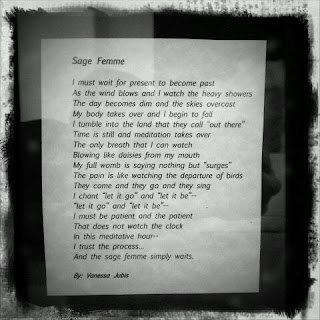 Sage Femme
I must wait for present to become past
As the wind blows and I watch the heavy showers
The day becomes dim and the skies overcast
My body takes over and I begin to fall
I tumble into the land that they call "out there"
Time is still and meditation takes over
The only breath that I can watch
Blowing like daisies from my mouth
My full womb is saying nothing but "surges"
The pain is like watching the departure of birds
They come and they go and they sing
I chant "let it go" and "let it be"--
"let it go" and "let it be"--
I must be patient and the patient
That does not watch the clock
In this meditative hour--
I trust the process...
And the sage femme simply waits.
By: Vanessa Jubis